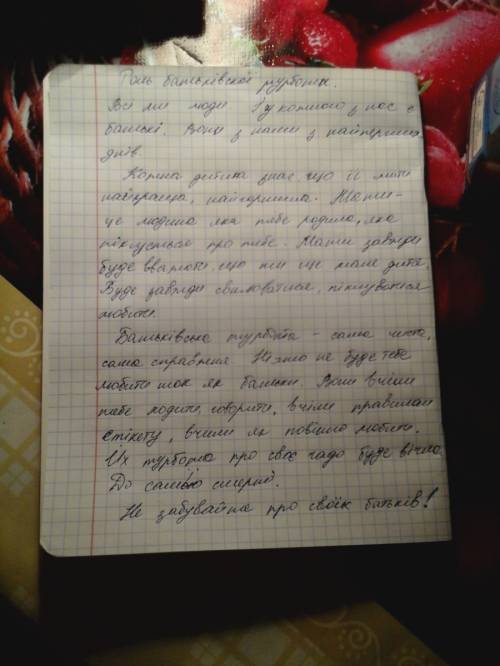 Роль батьківської турботи.
Всі ми люди. І у кожного з нас є
батьки. Вони з нами з найперших
днів.
Кожна дитина знає, що її мати
найкраща, найгарніша. Мати -
це людина яка тебе родила, яка
піклується про тебе. Мати завжди
буде вважати, що ти ще мале дитя.
Буде завжди хвилюватися, піклуватися
любити.
Батьківська турбота - сама чиста,
сама справжня. Ніхто не буде тебе
любити так як батьки. Вони вчили
тебе ходити, говорити, вчили правилам
етікету, вчили як повінно любити.
Их турбота про своє чадо буде вічно.
До самої смерті.
Не забувайте про своїх батьків!